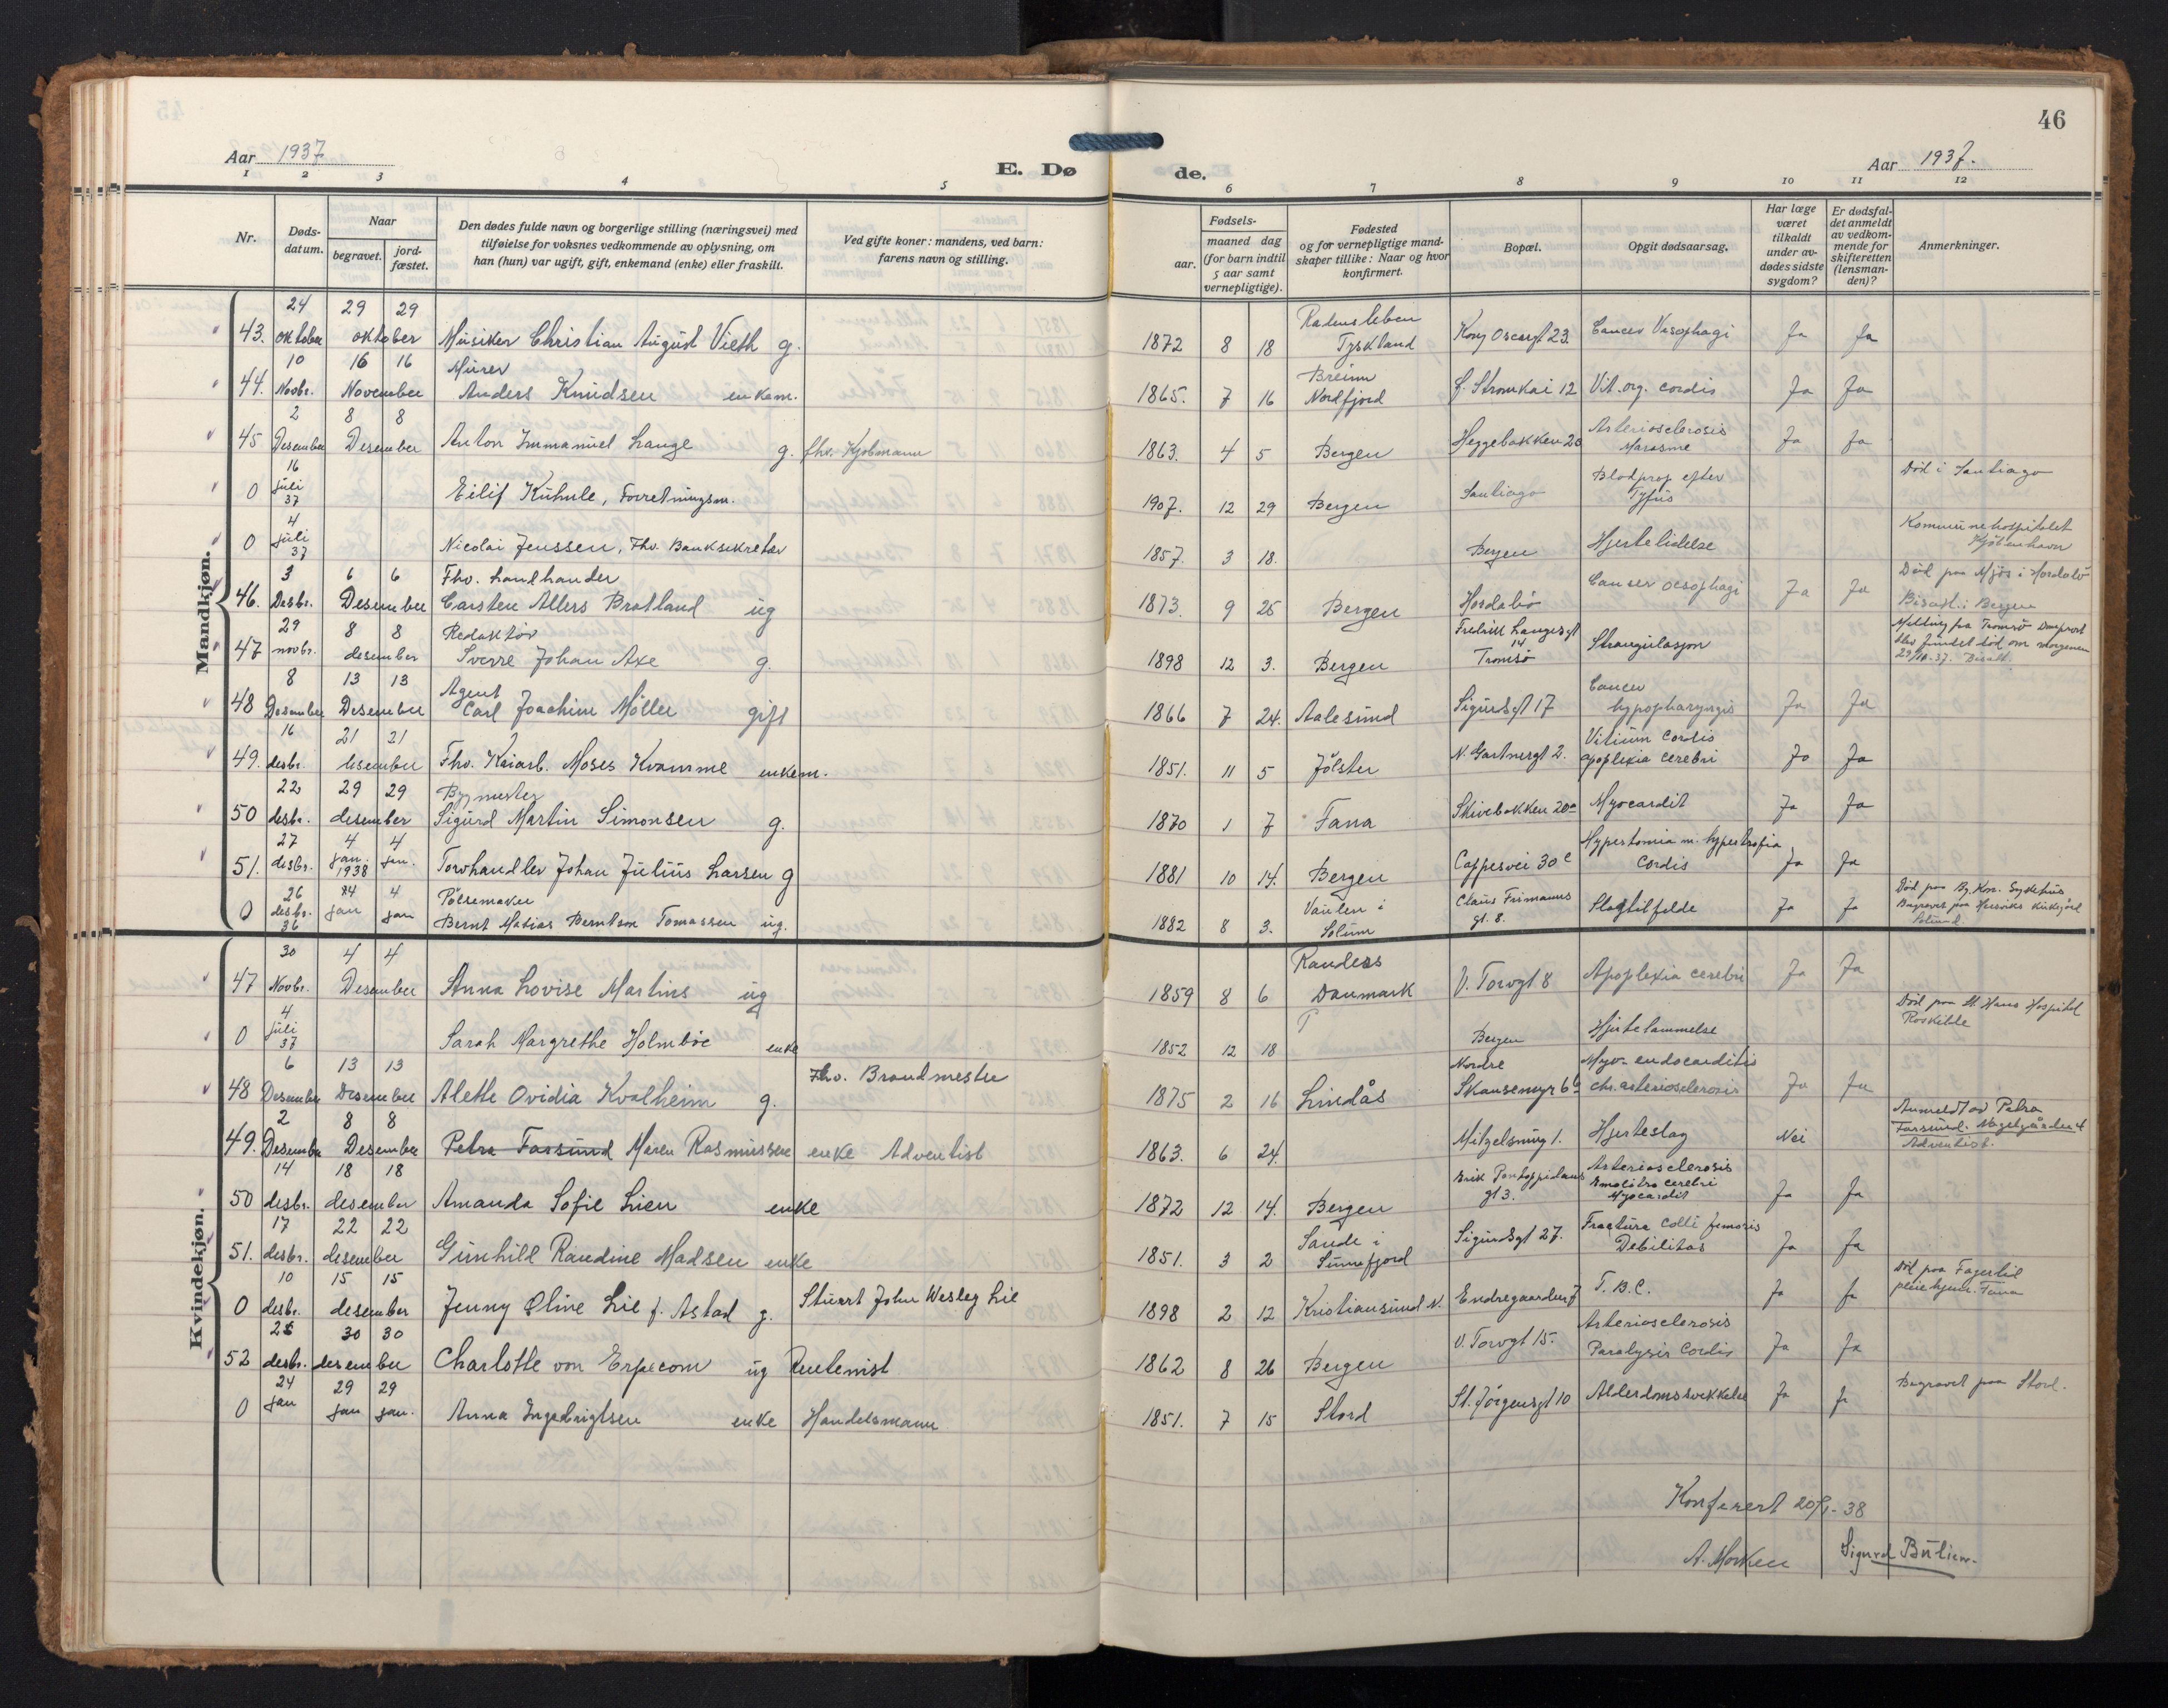 46
Aar 1937
E. Døde.
Aar 1937.
1 2 3 4 5 6 7 8 9 10 11 12
Nr.
Døds-datum.
Naar
begravet.
jord-fæstet.
Den dødes fulde navn og borgerlige stilling (næringsvei) med
tilføielse for voksnes vedkommende av oplysning, om
han (hun) var ugift, gift, enkemand (enke) eller fraskilt.
Ved gifte koner: mandens, ved barn:
farens navn og stilling.
Fødsels-
aar.
maaned dag
(for barn indtil
5 aar samt
vernepligtige).
Fødested
og for vernepligtige mand-
skaper tillike: Naar og hvor
konfirmert.
Bopæl.
Opgit dødsaarsag.
Har læge
været
tilkaldt
under av-
dødes sidste
sygdom?
Er dødsfal-
det anmeldt
av vedkom-
mende for
skifteretten
(lensman-
den)?
Anmerkninger.
Mandkjøn.
43. 24 oktober 29 29 oktober Musiker Christian August Vieth g. 1872 8 18 Tyskland Kong Oscarsgt 23. Cancer Ja Ja
44. 10 Novbr. 16 16 November Murer Anders Knudsen enkem. 1865. 7 16 Breim Nordfjord f. Strømkai 12 Vit. org. cordis Ja Ja
45 2 Desember 8 8 Desember Anton Immanuel Lange g. fhv. Kjøbmann 1863. 4 5 Bergen Heggebakken 20 Arteriosclerosis Marasme Ja Ja
0 16 juli 37 Eilif Kuhnle, Forretningsm. 1907. 12 29 Bergen Santiago Blodprop efter Tyfus Død i Santiago
0 4 juli 37 Nicolai Jenssen, Fhv. Banksekretær 1857. 3 18. Bergen Hjertelidelse Kommunehospitalet Kjøbenhavn
46. 3 Desbr. 6 6 Desember Fhv. Landhander Carsten Allers Bratland ug 1873. 9 25 Bergen Hordabø Cancer oesophagi Ja Ja Død paa Mjøs i Hordabø Bisatt i Bergen
47 29 novbr. 8 8 desember Redaktør Sverre Johan Axe g. 1898 12 3. Bergen Fredrik Langesgt 14 Tromsø Strangulasjon Melding fra Tromsø Domprost blev fundet død om morgenen 29/11-37. Bisatt.
48 8 Desember 13 13 Desember Agent Carl Joachim Møller gift 1866 7 24. Aalesund Sigurdsgt 17 Cancer hypopharyngis Ja Ja
49. 16 desbr. 21 21 desember Fhv. Kaiarb. Moses Kvamme enkem. 1851. 11 5 Jølster N. Gartnergt 2. Vitium Cordis apoplexia cerebri Ja Ja
50 22 desbr. 29 29 desember Bygmester Sigurd Martin Simonsen g. 1870 1 7 Fana Skivebakken 20a Myocardit Ja Ja
51. 27 desbr. 4 jan. 1938 4 jan. Torvhandler Johan Julius Larsen g 1881 10 14. Bergen Cappesvei 30c Hypertomia m. hypertrofia Cordis Ja Ja
0 26 desbr. 36 4 jan 4 jan Pølsemaker Bernt Matias Berntsen Tomassen ug. 1882 8 3. i Solum Claus Frimanns gt. 8. Slagtilfelde Ja Ja Død paa Kirkegård Solund
Kvindekjøn.
47 30 Novbr. 4 4 Desember Anna Lovise Martins ug 1859 8 6 Randers Danmark V. Torvgt 8 Apoplexia cerebri Ja Ja
0 4 juli 37 Sarah Margrethe Holmboe enke 1852 12 18 Bergen Hjertelammelse Død paa St. Hans Hospital Roskilde
48 6 Desember 13 13 Desember Alette Ovidia Kvalheim g. Fhv. Brandmester 1875 2 16 Lindås Nordre Skansemyr 6b Myo- endocarditis chr. arteriosclerosis Ja Ja
49. 2 Desember 8 8 Desember Petra Farsund Maren Rasmussen enke Adventist 1863. 6 24. Mitzelsmug 1. Hjerteslag Nei Anmeldt av Petra Farsund. Adventist.
50 14 desbr. 18 18 desember Amanda Sofie Lien enke 1872 12 14. Bergen Erik Pontoppidans gt 3. Arteriosclerosis cerebri Myocardit Ja Ja
51. 17 desbr. 22 22 desember Gunhild Raudine Madsen enke 1851. 3 2 Sande i Sunnfjord Sigurdsgt 27. Fractura Colli femoris Debilitas Ja Ja
0 10 desbr. 15 15 desember Jenny Oline Lie f. Astad g. Stuert John Wesley Lie 1898 2 12 Kristiansund N. Endregaarden 7 T.B.C. Ja Ja Død paa Fagerlid pleiehjem. Fana
52 25 desbr. 30 30 desember Charlotte von Erpecom ug Rentenist 1862 8 26 Bergen V. Torvgt 15. Arteriosclerosis Paralysis Cordis Ja Ja
0 24 jan 29 jan 29 jan. Anna Ingebrigtsen enke Handelsmann 1851. 7 15 Stord St. Jørgensgt 10 Alderdomssvekkelse Ja Ja Begravet paa Stord.
Konferert 20/1-38